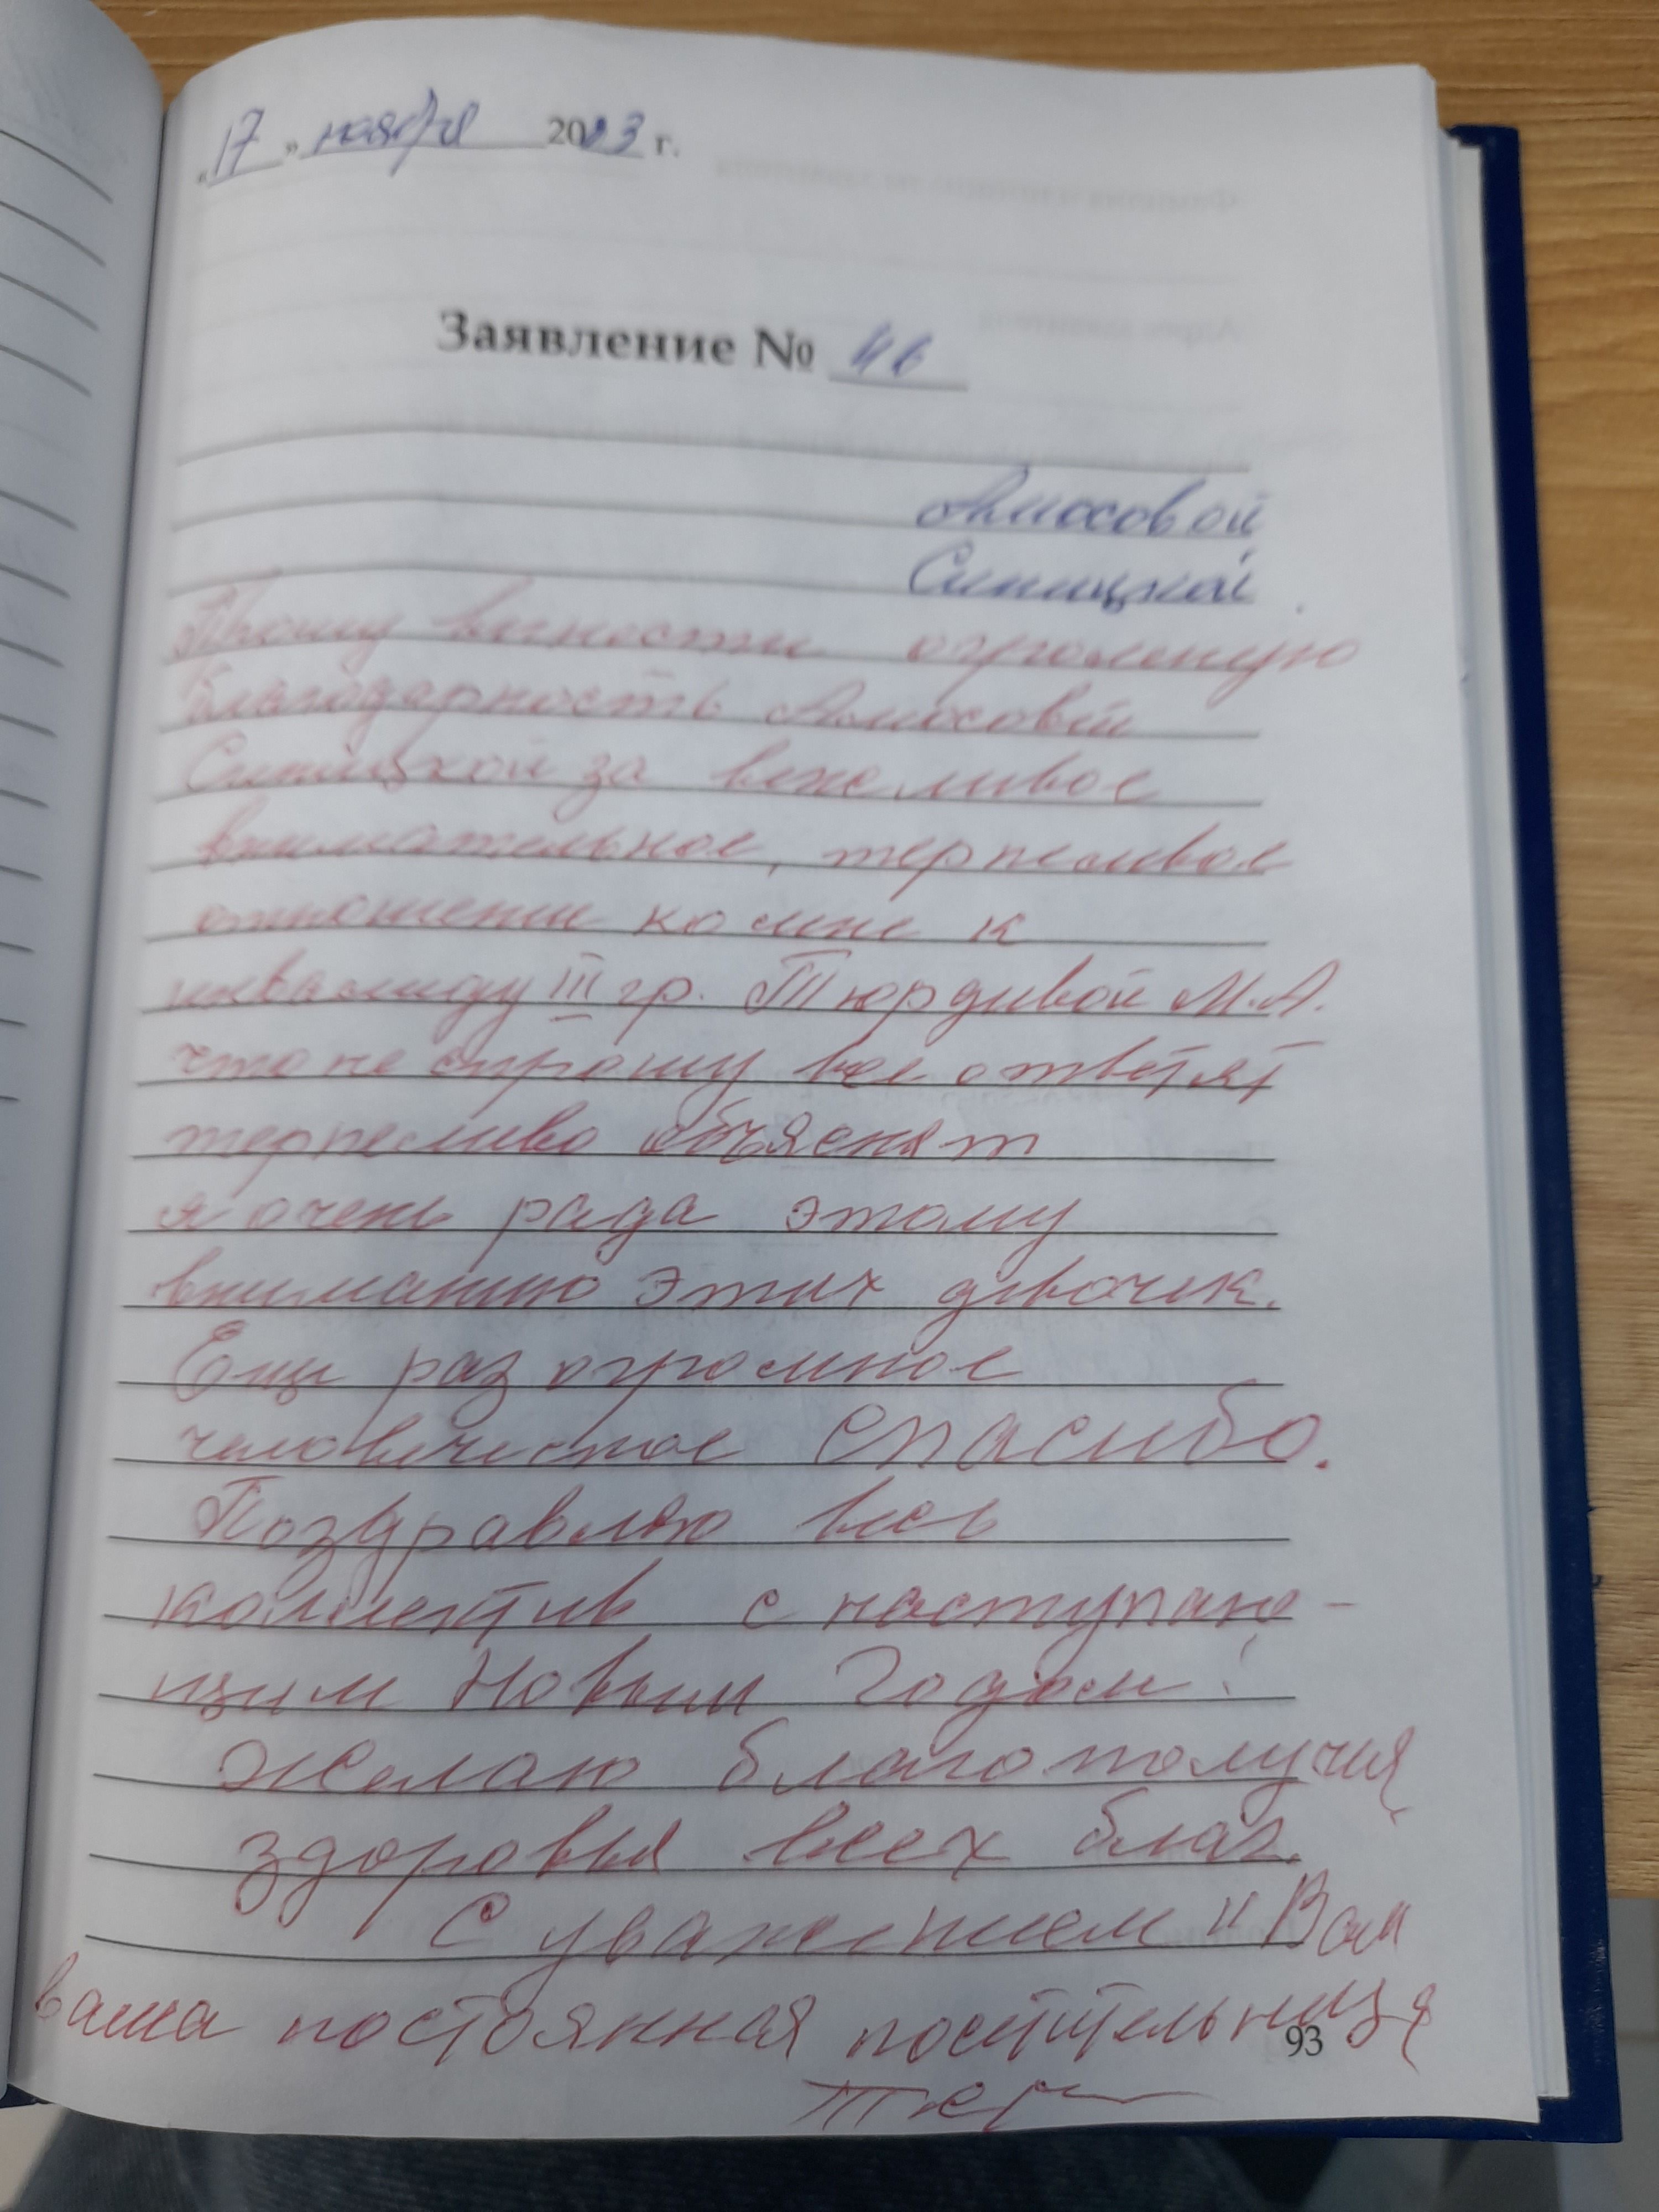 „17" ноября 2023 г.
Заявление № 46
Амосовой
Синицкой.
Прошу вынести огромную
благодарность Амосовой
Синицкой за вежливое
внимательное, терпеливое
отношение ко мне к
инвалиду III гр. Тюрдивой М.А.
что не спрошу все ответят
терпеливо объяснят
я очень рада этому
вниманию этих девочек.
Еще раз огромное
человеческое спасибо.
Поздравляю весь
коллектив с наступаю-
щим Новым Годом!
Желаю благополучия,
здоровья всех благ.
С уважением к Вам
ваша постоянная посетительница
93